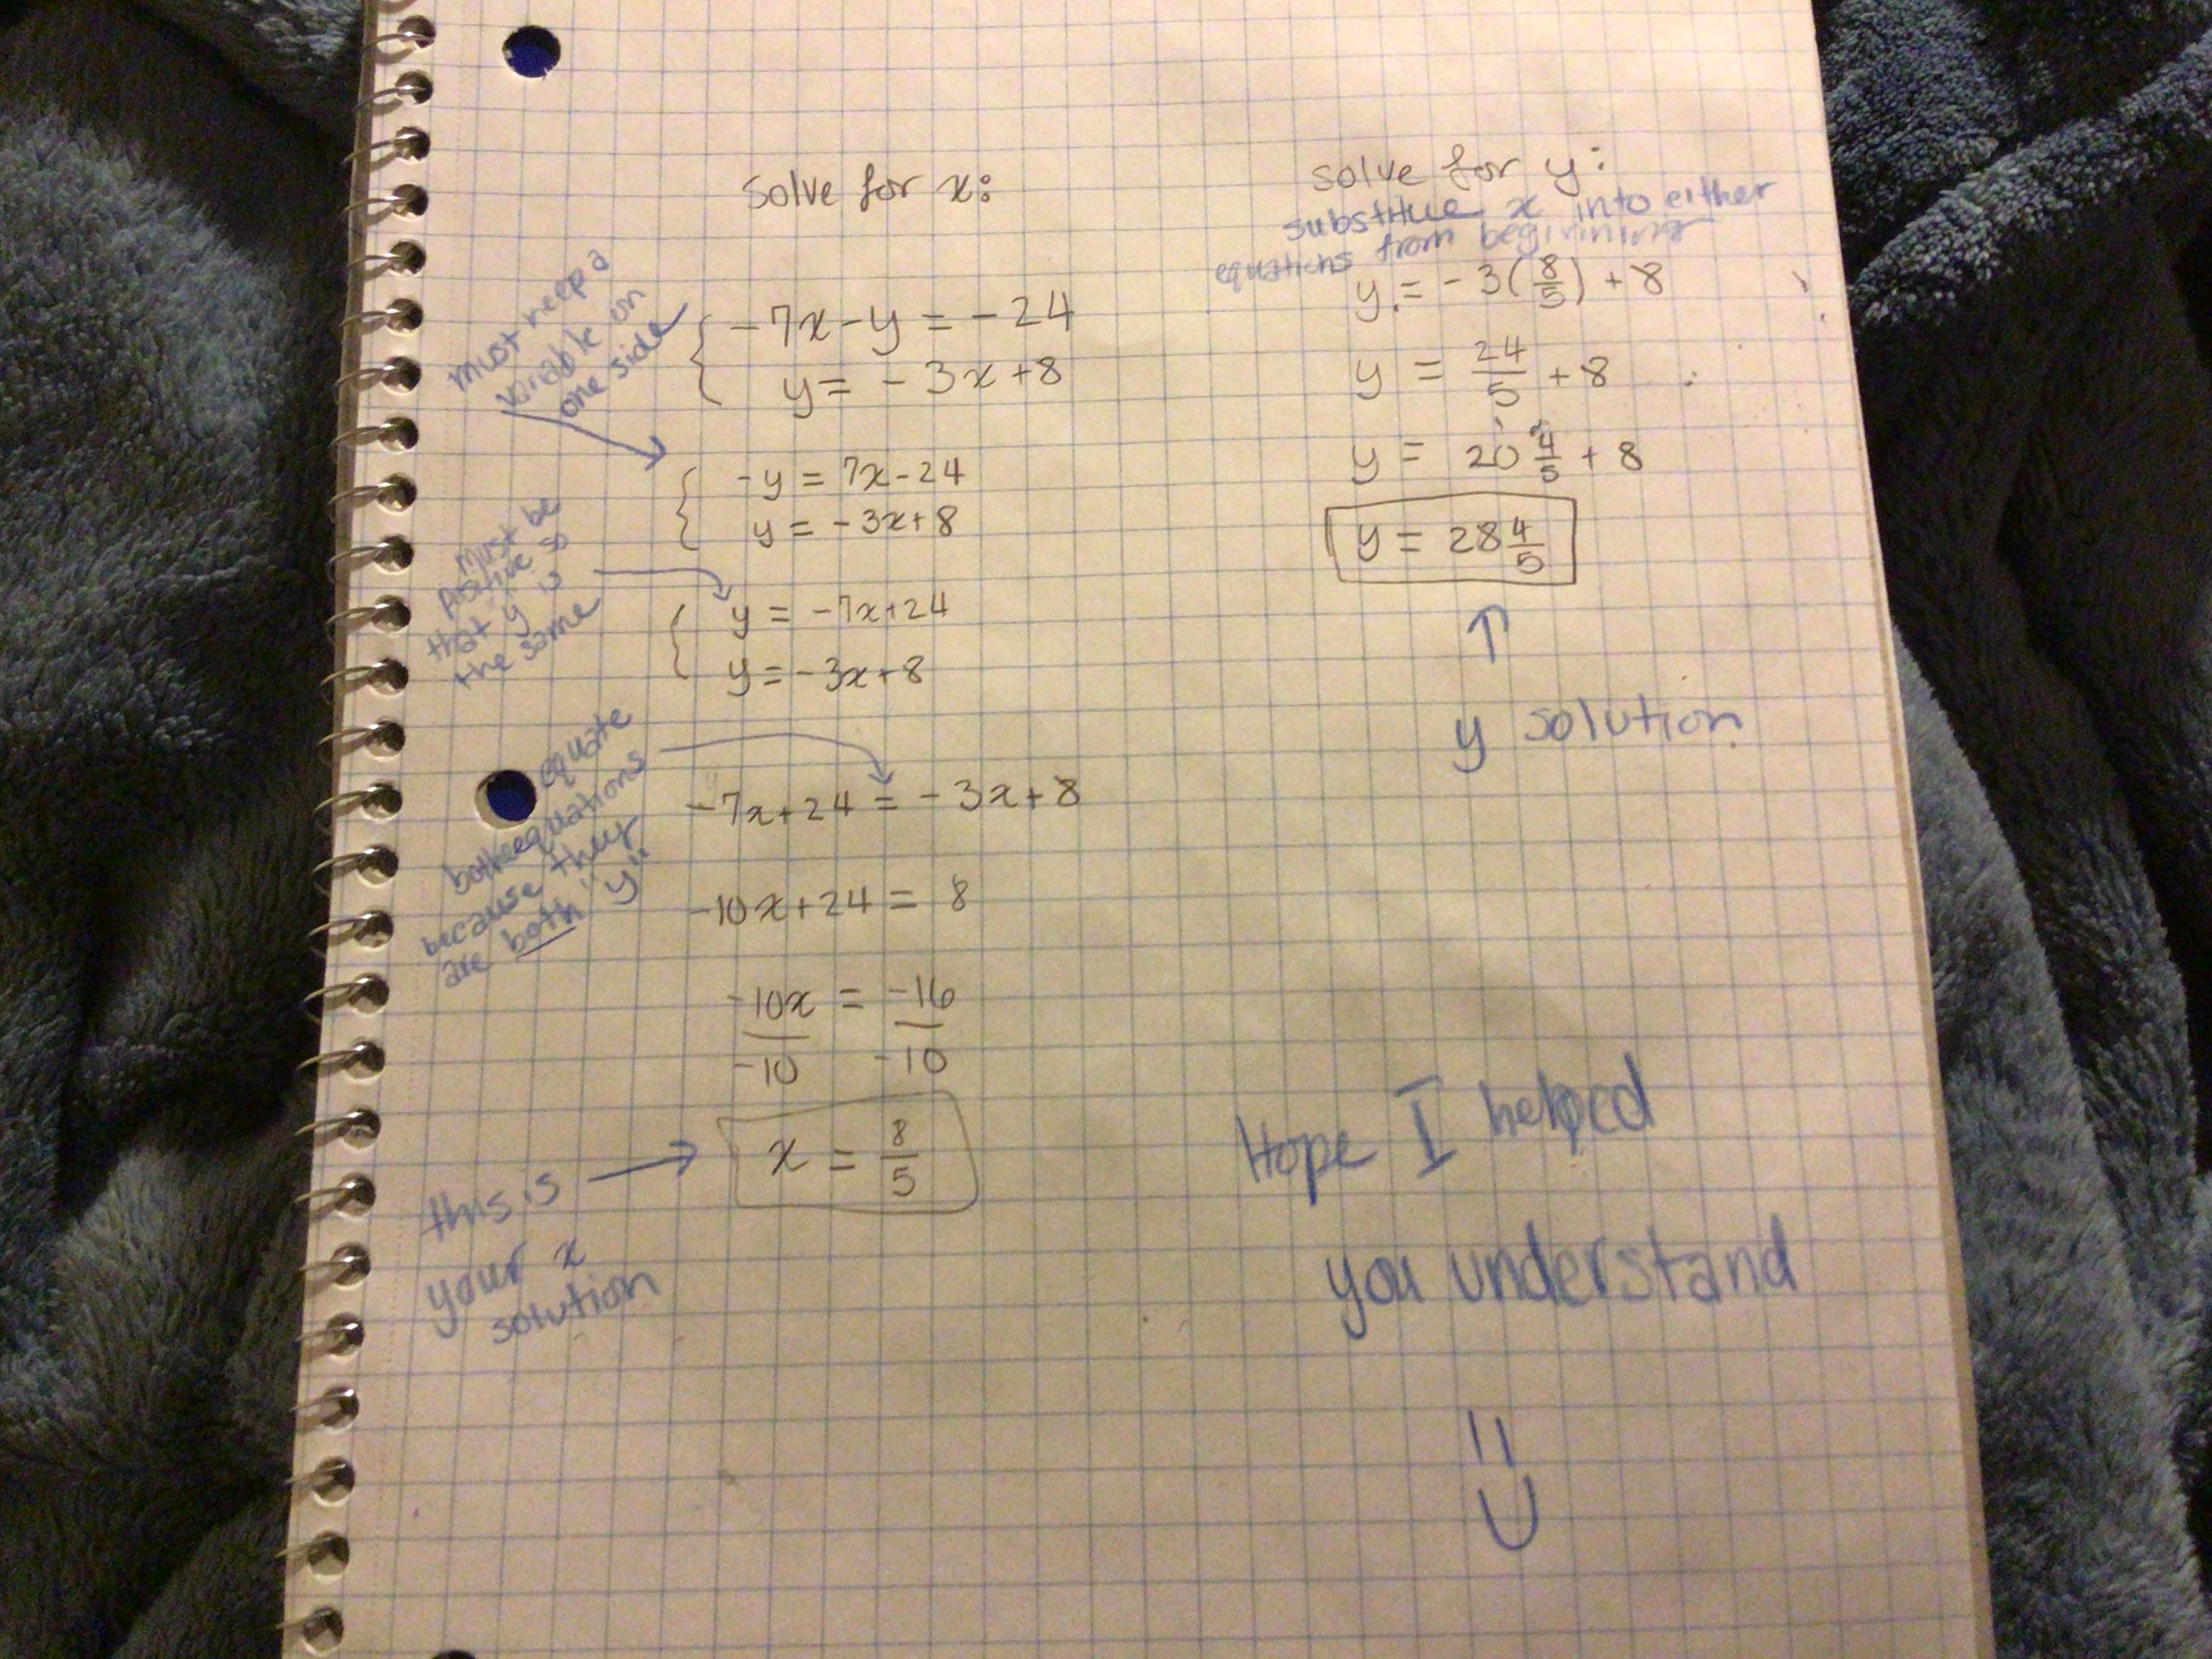 Solve for x:
must keep a
variable on
one side
{ -7x-y = -24
y = -3x+8
{ -y = 7x-24
y = -3x+8
must be
positive so
that y is
the same
{ y = -7x+24
y = -3x+8
equate
both equations
because they
are both "y"
-7x+24 = -3x+8
-10x+24 = 8
-10x = -16
-10 -10
this is
your x
solution
x = 8/5
solve for y:
substitue x into either
equations from beginning
y = -3(8/5) + 8
y = 24/5 + 8
y = 20 4/5 + 8
y = 28 4/5
y solution
Hope I helped
you understand